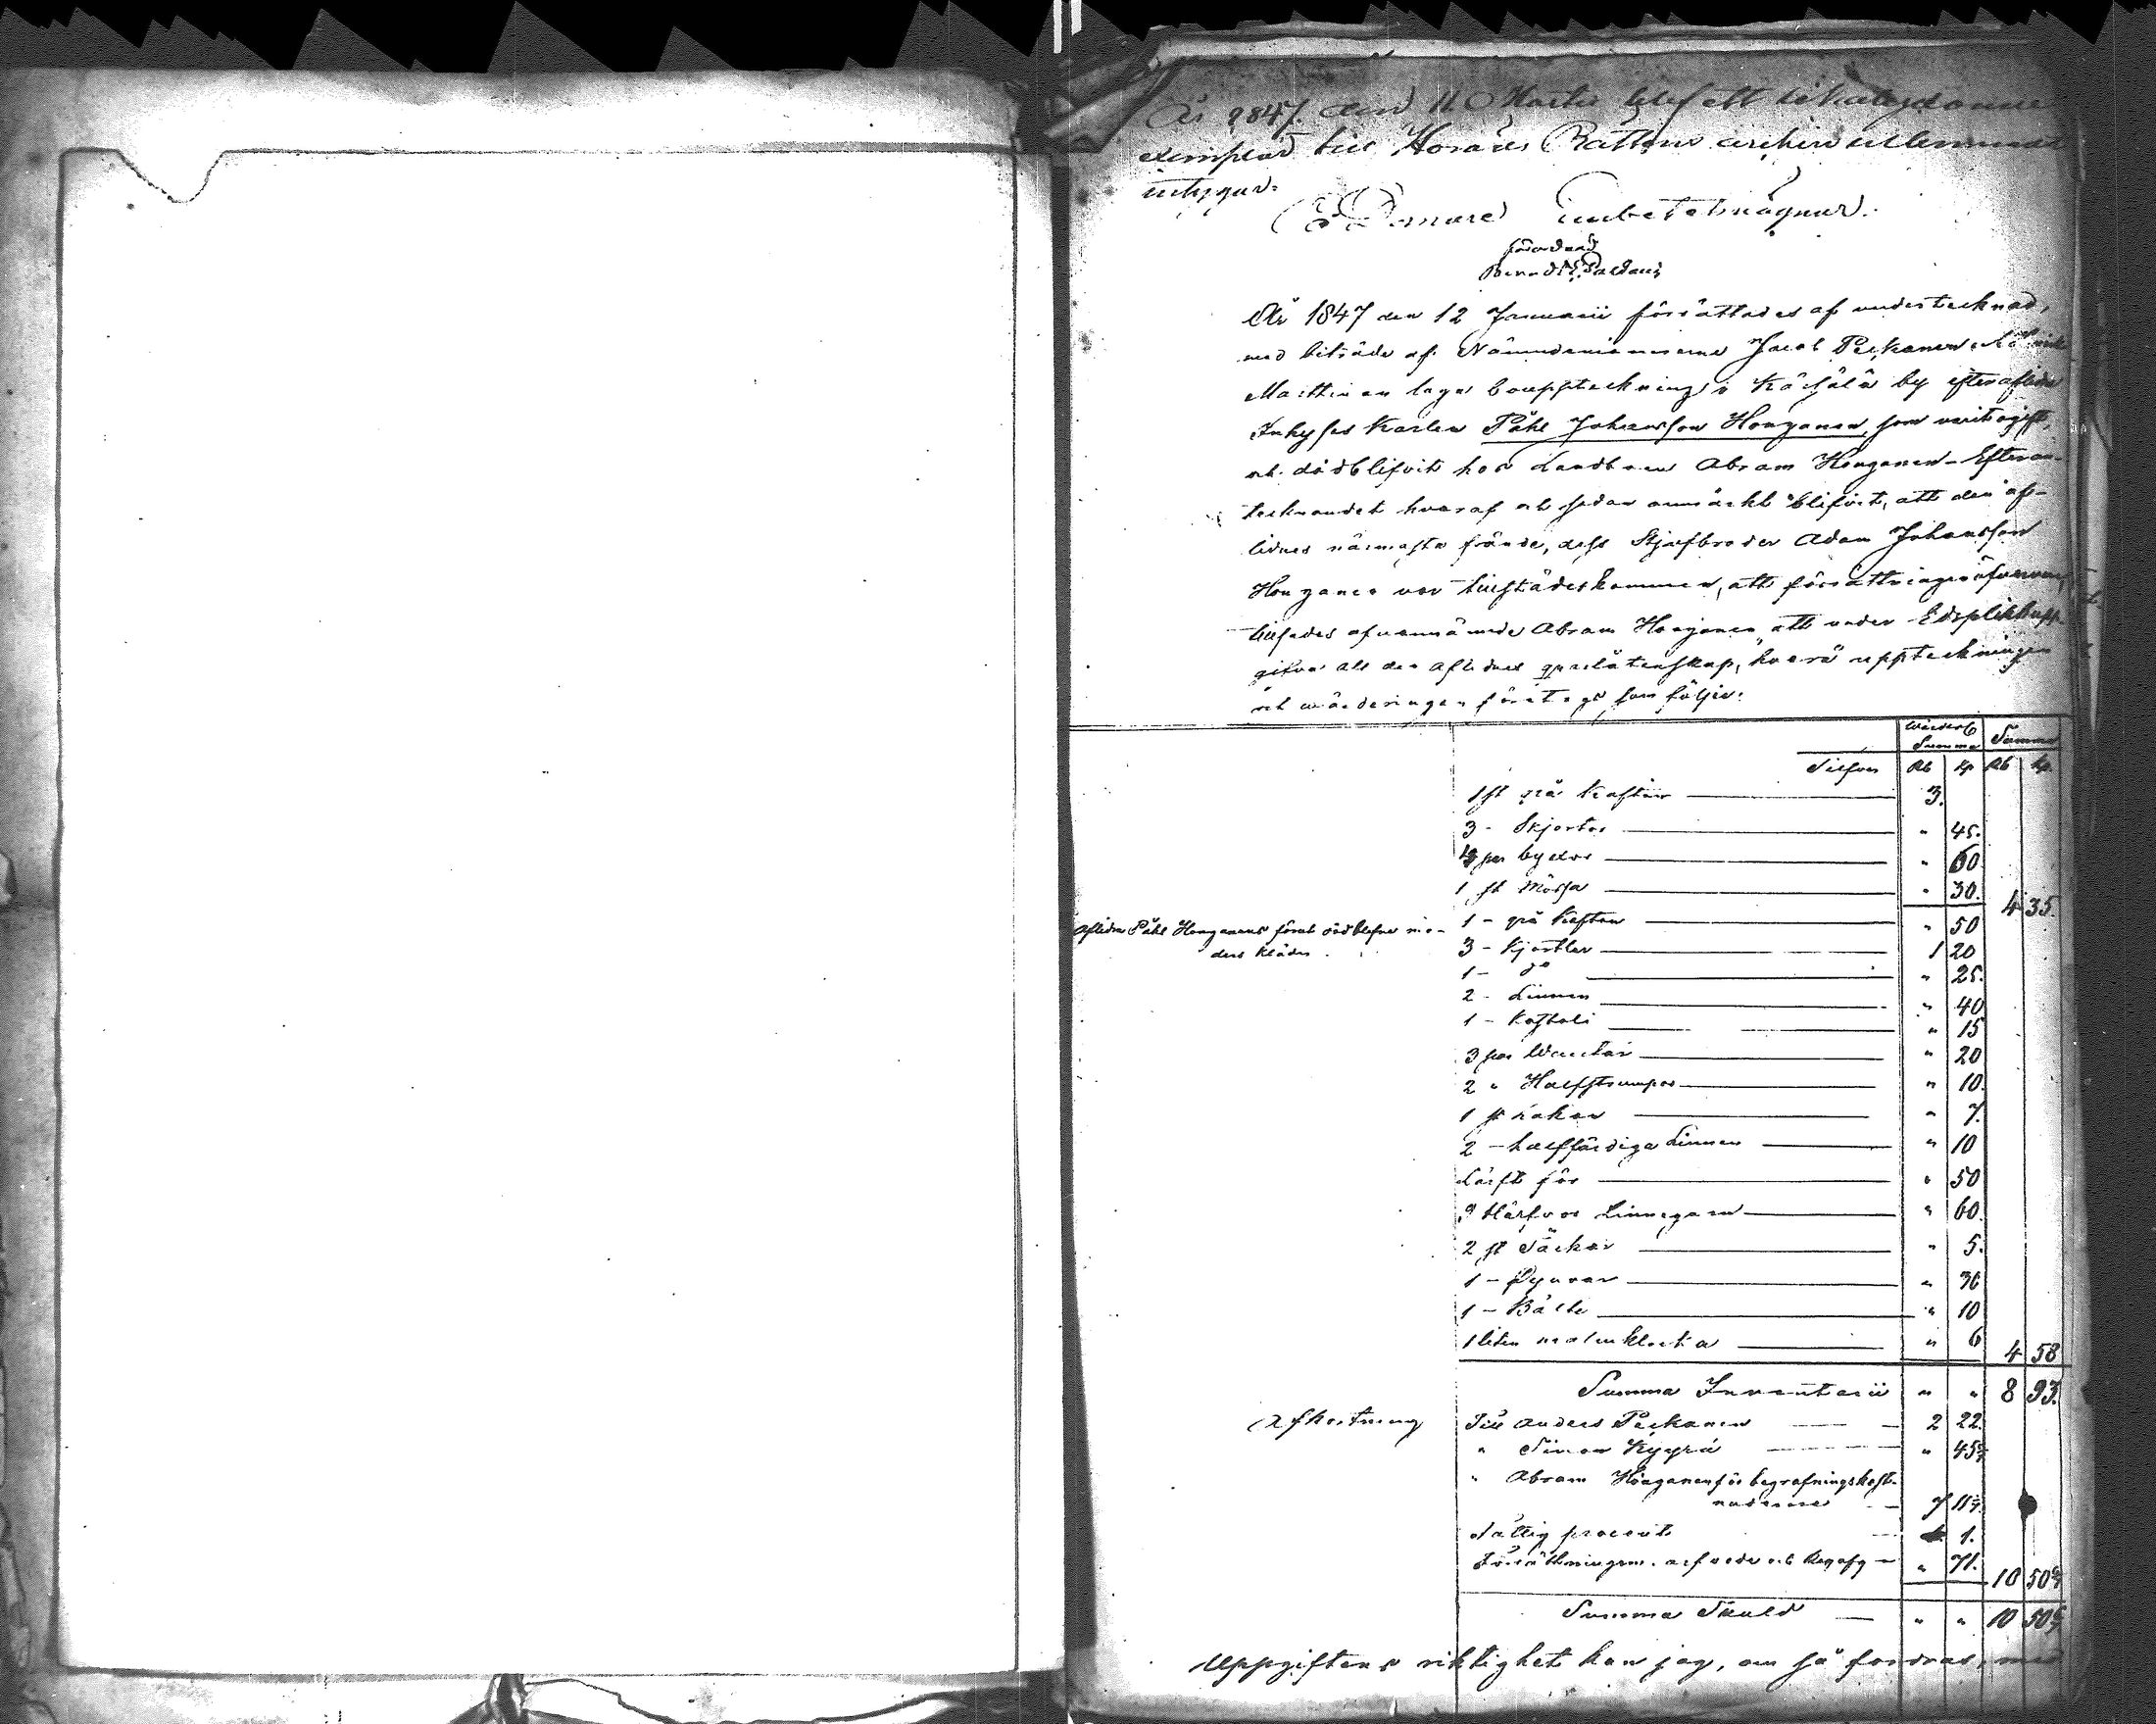 År 1847. den 11 Martii blef ett likalydande
exemplar till Härads Rättens archiv utlemnadt
intygar:
E Domare Embetets vägnar:
förordnad
År 1847 den 12 Januarii förrättades af undertecknad,
med biträde af Nämndemännerne Jacob Peckanen
Marttinen laga bouppteckning i by efter aflidne
Inhyses Karlen Påhl Johansson Honganen, som varit ogift,
och dödblifvit hos Landbonen Abram Honganen. Efteran-
tecknandet hvaraf och sedan anmärkt blifvit, att den af-
lidnes närmaste frände, dess Styfbroder Adam Johansson
Honganen var tillstädeskommen, att förrättningen öfvervara,
tillsades ofvannämnde Abram Honganen att under Edsplikt upp-
gifva all den aflidnes qvarlåtenskap, hvarå uppteckningen
och värderingen företogs som följer:
Värder Summa
Summa
Silfver Rb Kp Rb Kp.
1 st grå Kaftan 3.
3 - Skjortor " 45.
par byxor " 60
1 st Mössa " 30. 4 35.
Aflidne Påhl Honganens förut dödblefne mo-
ders kläder
1 - grå Kaftan " 50
3 - Kjortlar 1 20
1 - do " 25.
2 - Linnen " 40
1 - " 15
3 par Wantar " 20
2 " Halfstrumpor " 10.
1 st " 7.
2 - halffärdiga Linnen " 10
Lärft för " 50
Härfvor Linnegarn " 60.
2 st Säckar " 5.
1 - Dynvar " 30
1 - Bälte " 10
1 liten malmklocka " 6 4 58
Summa Inventarii " " 8 93.
Afkortning
Till Anders Peckanen 2 22.
" Simon Kyyrä " 45
" Abram Honganen för begrafningskost-
naderne 7 11
Fattig procent 1.
Förrättningsm. arfvode och " 71. 10 50
Summa Skuld " " 10 50
Uppgiftens riktighet kan jag, om så fordras, med